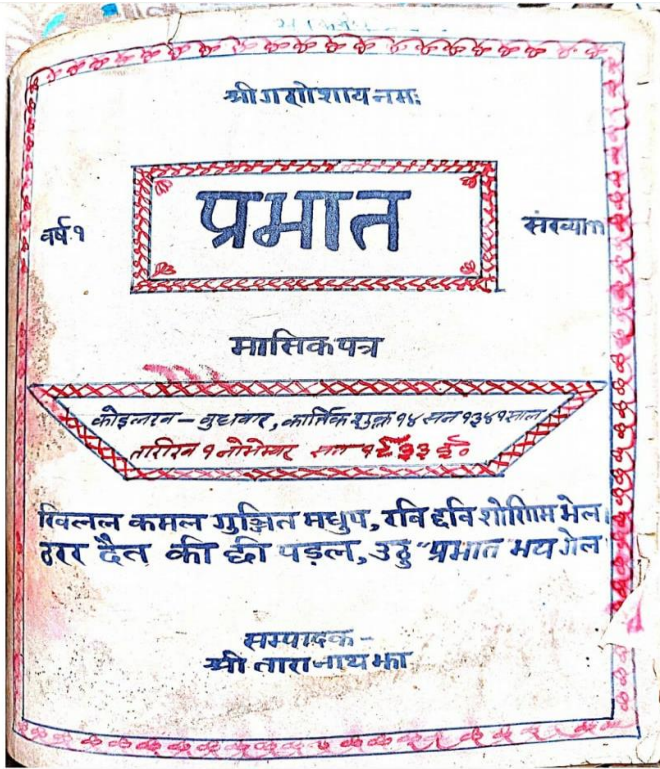 श्रीगणेशाय नमः
वर्ष १
प्रभात
संख्या १
मासिक पत्र
कोइलख – बुधवार, कार्तिक शुक्ल १४ सन १३४१ साल
तारिख १ नोमेम्बर सन १९३३ ई०
खिलल कमल गुञ्जित मधुप, रवि छवि शोणिम भेल।
ठरर दैत की छी पड़ल, उठु "प्रभात भय गेल
सम्पादक –
श्री तारानाथ झा